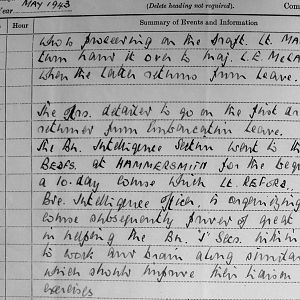 MAY 1943
Year
(Delete heading not required).
Com
Hour
Summary of Events and Information
who is proceeding on the draft. Lt. MA
turn hand it over to Maj. L.E. McLA
when the latter returns from leave.
The Ors. detailed to go on the first dr
returned from Embarcation leave.
The Bn. Intelligence Section went to th
BEDFS. at HAMMERSMITH for the begin
a 10-day course which Lt. REFORS,
Bde. Intelligence officer, is organizing
course subsequently proved of great
in helping the Bn. 'I' Secs. within
to work and train along similar
which should improve their liaison
exercises